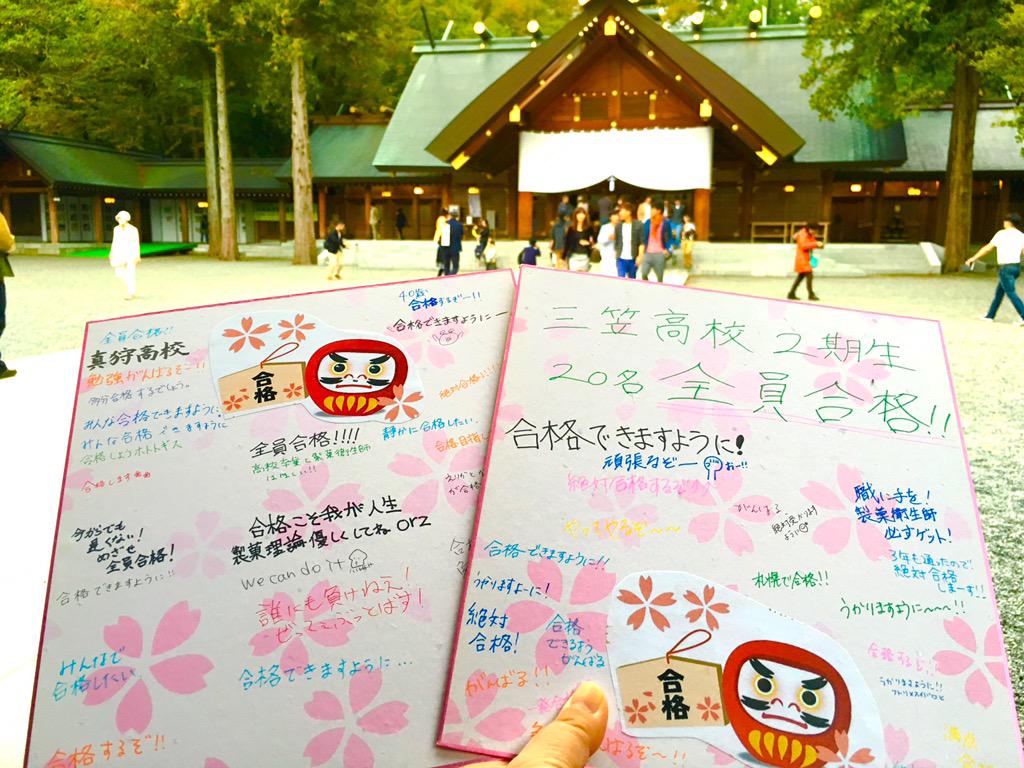 全員合格!!
真狩高校
勉強がんばるぞー!!
多分合格するでしょう。
みんな合格できますように!
みんな合格できますように
合格しようホトトギス
合格します
合格
合格するぞー!!
合格できますように―
絶対合格!!!
静かに合格したい。
合格目指し
全員合格!!!!
高校卒業と製菓衛生師
ほしい!!
が合格
今からでも
遅くない!
めざせ
全員合格!
合格できますように!!
合格こそ我が人生
製菓理論優しくしてね orz
we can do it
誰にも負けねぇ!
ぜってぇぶっとばす!
みんなで
合格したい
合格できますように...
合格するぞ!!
三笠高校 2期生
20名 全員合格!!
合格できますように!
頑張るぞー おー!!
絶対合格するぞ
がんばる
やってやるぞ~~
職に手を!
製菓衛生師
必ずゲット!
3年も通ったので
絶対合格
しまーす!!
合格できますように!!
うかりますよーに!!
札幌で合格!!
うかりますように~~~!!
絶対
合格!
合格
できるよう
がんばる
がんばる!!
合格
合格するし!
うかりますように!!
んばるぞ~!!